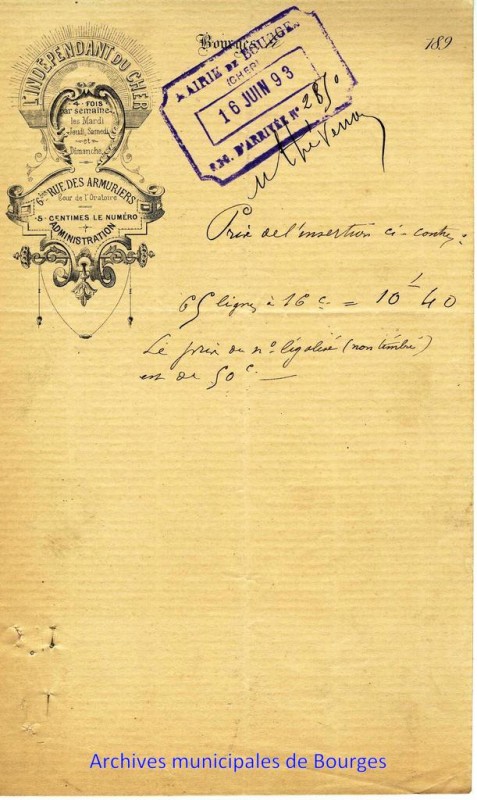 L'INDÉPENDANT DU CHER
4 FOIS
par semaine
les Mardi
Jeudi, Samedi
et
Dimanche
6 bis RUE DES ARMURIERS
Cour de l'Oratoire
5 CENTIMES LE NUMÉRO
ADMINISTRATION
Bourges
189
MAIRIE DE BOURGES
(CHER)
16 JUIN 93
REG. D'ARRIVÉE N°
Prix de l'insertion ci-contre :
65 lignes à 16 c. = 10f 40
Le prix du n° légalisé (non timbré)
est de 50c —
Archives municipales de Bourges